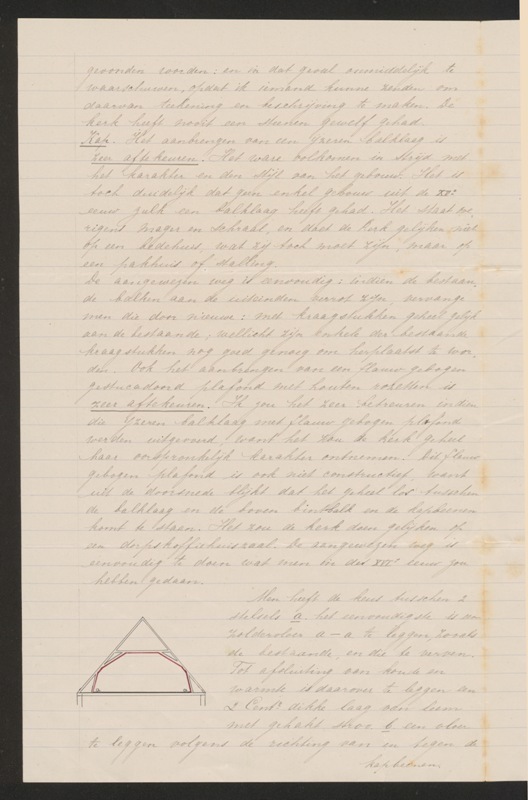 gevonden worden: en in dat geval onmiddelijk te
waarschuwen, opdat ik iemand kunne zenden om
daarvan teekening en beschrijving te maken. De
kerk heeft nooit een steenen gewelf gehad.
Kap. Het aanbrengen van een yzeren balklaag is
zeer aftekeuren. Het ware volkomen in strijd met
het karakter en den stijl van het gebouw. Het is
toch duidelijk dat geen enkel gebouw uit de XVe
eeuw zulk een balklaag heeft gehad. Het staat ove
rigens mager en schraal, en doet de kerk gelijken, niet
op een bedehuis, wat zij toch moet zijn, maar op
een pakhuis of stalling.
De aangewezen weg is eenvoudig: indien de bestaan
de balken aan de uiteinden verrot zijn, vervange
men die door nieuwe: met kraagstukken geheel gelijk
aan de bestaande; wellicht zijn enkele der bestaande
kraagstukken nog goed genoeg om herplaatst te wor
den. Ook het aanbrengen van een flauw gebogen
gestucadoord plafond met houten rozetten is
zeer aftekeuren. Ik zou het zeer betreuren indien
die yzeren balklaag met flauw gebogen plafond
werden uitgevoerd, want het zou de kerk geheel
haar oorspronkelijk karakter ontnemen. Dit flauw
gebogen plafond is ook niet constructief, want
uit de doorsnede blijkt dat het geheel los tusschen
de balklaag en de boven bintbalk en de kapbeenen
komt te staan. Het zou de kerk doen gelijken op
een dorpskoffiehuiszaal. De aangewezen weg is
eenvoudig te doen wat men in de XVIe eeuw zou
hebben gedaan.
Men heeft de keus tusschen 2
stelsels a. het eenvoudigste is een
zoldervloer a-a te leggen, zooals
de bestaande, en die te verven.
Tot afsluiting van koude en
warmte is daarover te leggen een
2 Centr dikke laag van leem
met gehakt stroo. b. een vloer
te leggen volgens de richting van en tegen de
kapbeenen.